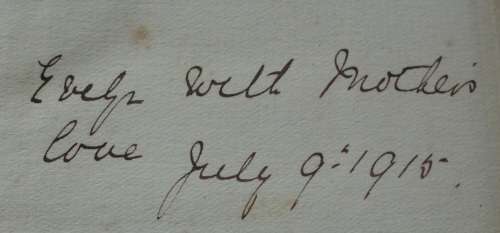 Evelyn with Mother's
love July 9th 1915.